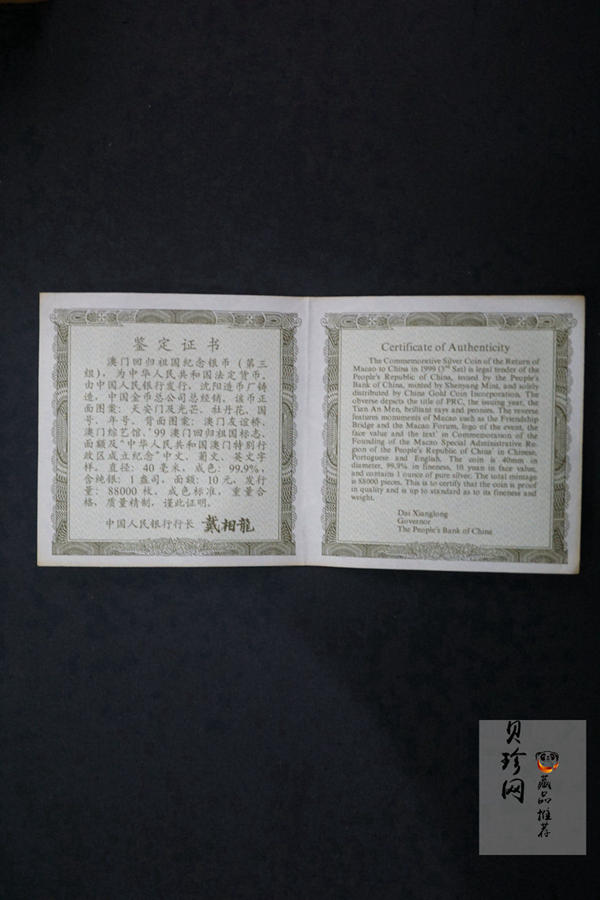 鉴定证书
澳门回归祖国纪念银币(第三
组),为中华人民共和国法定货币,
由中国人民银行发行,沈阳造币厂铸
造,中国金币总公司总经销。该币正
面图案:天安门及光芒、牡丹花、国
号、年号。背面图案:澳门友谊桥、
澳门综艺馆、'99澳门回归祖国标志、
面额及“中华人民共和国澳门特别行
政区成立纪念”中文、葡文、英文字
样。直径:40毫米,成色:99.9%,
含纯银:1盎司,面额:10元,发行
量:88000枚。成色标准,重量合
格,质量精制,谨此证明。
中国人民银行行长 戴相龍
Certificate of Authenticity
The Commemorative Silver Coin of the Return of
Macao to China in 1999 (3rd Set) is legal tender of the
People's Republic of China, issued by the People's
Bank of China, minted by Shenyang Mint, and solely
distributed by China Gold Coin Incorporation. The
obverse depicts the title of PRC, the issuing year, the
Tian An Men, brilliant rays and peonies. The reverse
features monuments of Macao such as the Friendship
Bridge and the Macao Forum, logo of the event, the
face value and the text' in Commemoration of the
Founding of the Macao Special Administrative Re-
gion of the People's Republic of China' in Chinese,
Portuguese and English. The coin is 40mm in
diameter, 99.9% in fineness, 10 yuan in face value,
and contains 1 ounce of pure silver. The total mintage
is 88000 pieces. This is to certify that the coin is proof
in quality and is up to standard as to its fineness and
weight.
Dai Xianglong
Governor
The People's Bank of China
贝珍网
藏品推荐